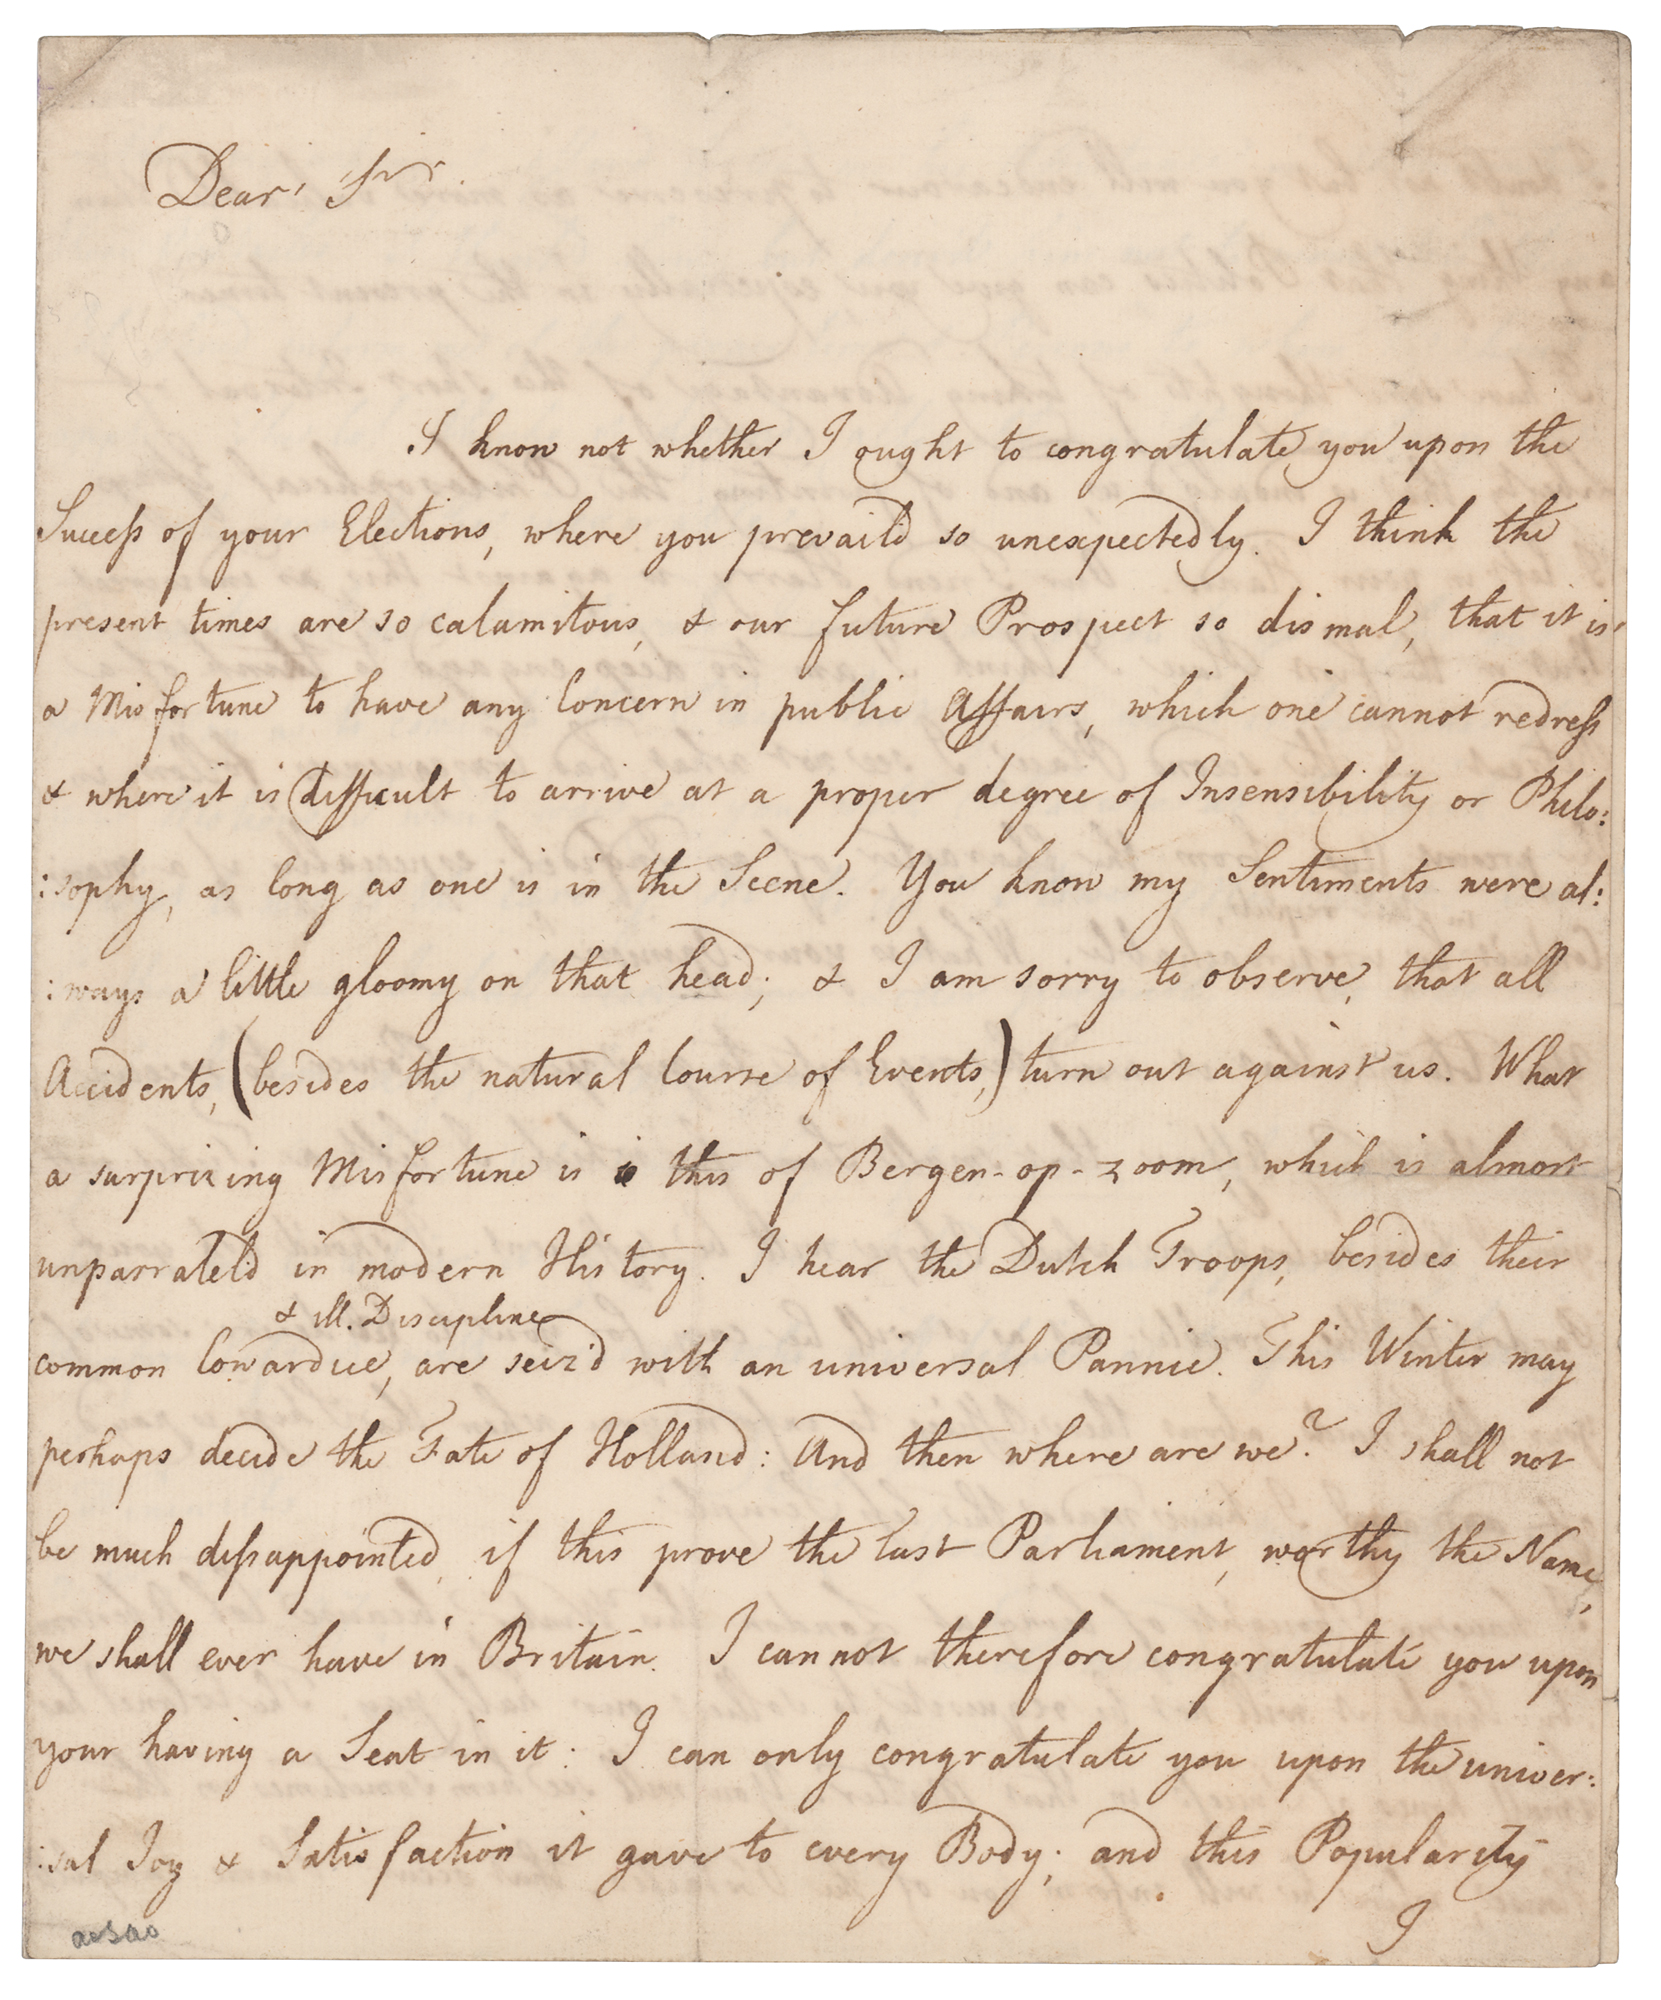 Dear Sir
I know not whether I ought to congratulate you upon the
Success of your Elections, where you prevail'd so unexpectedly. I think the
present times are so calamitous, & our future Prospect so dismal, that it is
a Misfortune to have any Concern in public Affairs, which one cannot redress
& where it is difficult to arrive at a proper degree of Insensibility or Philo:
:sophy, as long as one is in the Scene. You know my Sentiments were al:
:ways a little gloomy on that head; & I am sorry to observe, that all
Accidents, (besides the natural Course of Events,) turn out against us. What
a surprizing Misfortune is this of Bergen-op-zoom, which is almost
unparralel'd in modern History. I hear the Dutch Troops, besides their
& ill Discipline
common Cowardice, are seiz'd with an universal Pannic. This Winter may
perhaps decide the Fate of Holland: And then where are we? I shall not
be much dissappointed, if this prove the last Parliament, worthy the Name,
we shall ever have in Britain. I cannot therefore congratulate you upon
your having a Seat in it: I can only congratulate you upon the univer:
:sal Joy & Satisfaction it gave to every Body; and this Popularity
I